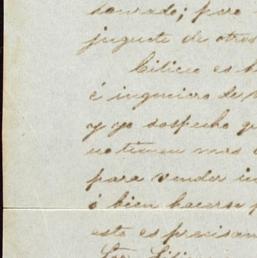 honrado; pero
juguete de otros
Cilicio es h
é ingeniero de
y yo sospecho q
no tienen mas
para vender in
ó bien hacerse p
esto es precisam